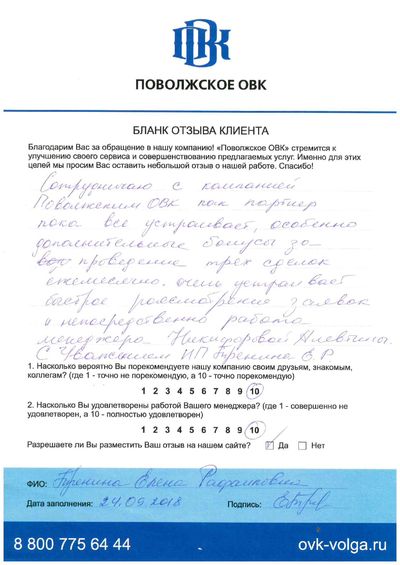 ПОВОЛЖСКОЕ ОВК
БЛАНК ОТЗЫВА КЛИЕНТА
Благодарим Вас за обращение в нашу компанию! «Поволжское ОВК» стремится к
улучшению своего сервиса и совершенствованию предлагаемых услуг. Именно для этих
целей мы просим Вас оставить небольшой отзыв о нашей работе. Спасибо!
Сотрудничаю с компанией
Поволжским ОВК как партнер
пока все устраивает, особенно
дополнительные бонусы за
проведение трёх сделок
ежемесячно. очень устраивает
быстрое рассмотрения заявок
и непосредственно работа
менеджера Никифоровой Алевтины.
С Уважением ИП Бренина Е.Р
1. Насколько вероятно Вы порекомендуете нашу компанию своим друзьям, знакомым,
коллегам? (где 1 - точно не порекомендую, а 10 - точно порекомендую)
1 2 3 4 5 6 7 8 9 10
2. Насколько Вы удовлетворены работой Вашего менеджера? (где 1 - совершенно не
удовлетворен, а 10 - полностью удовлетворен)
1 2 3 4 5 6 7 8 9 10
Разрешаете ли Вы разместить Ваш отзыв на нашем сайте? Да Нет
ФИО: Бренина Елена Рафаиловна
Дата заполнения: 24.09.2018 Подпись:
8 800 775 64 44 ovk-volga.ru